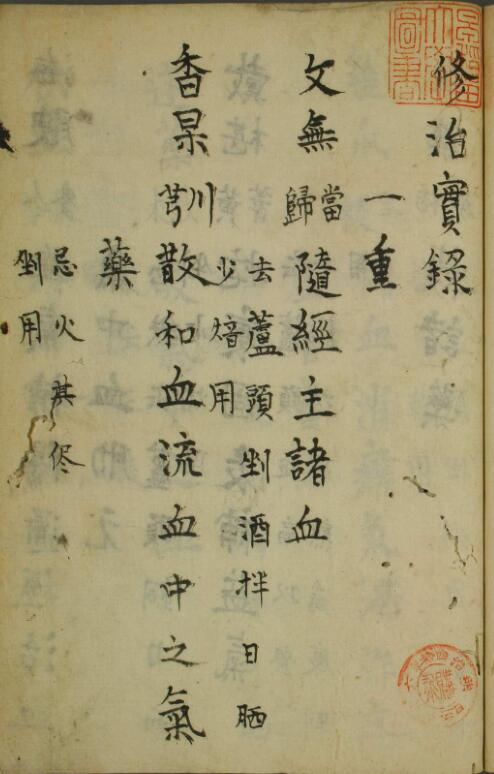 修治實錄
一重
文無 當歸 隨經主諸血
去蘆頭剉酒拌日晒
少焙用
香杲 川芎 散和血流血中之氣
藥
忌火其侭
剉用